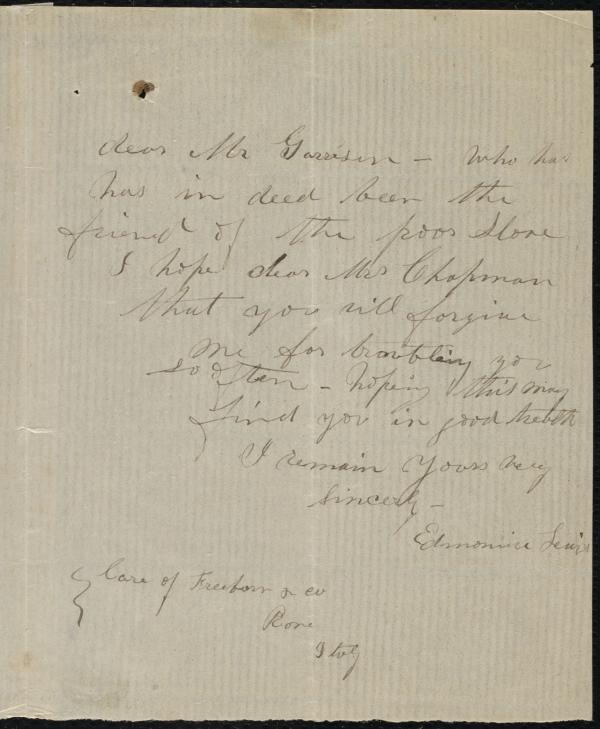 dear Mr Garrison - who has
has in deed been the
friend of the poor Slave
I hope dear Mrs Chapman
that you will forgive
me for troubling you
so often - hoping this may
find you in good health
I remain yours very
Sincerly -
Edmonia Lewis
Care of Freeborn & co
Rome
Italy